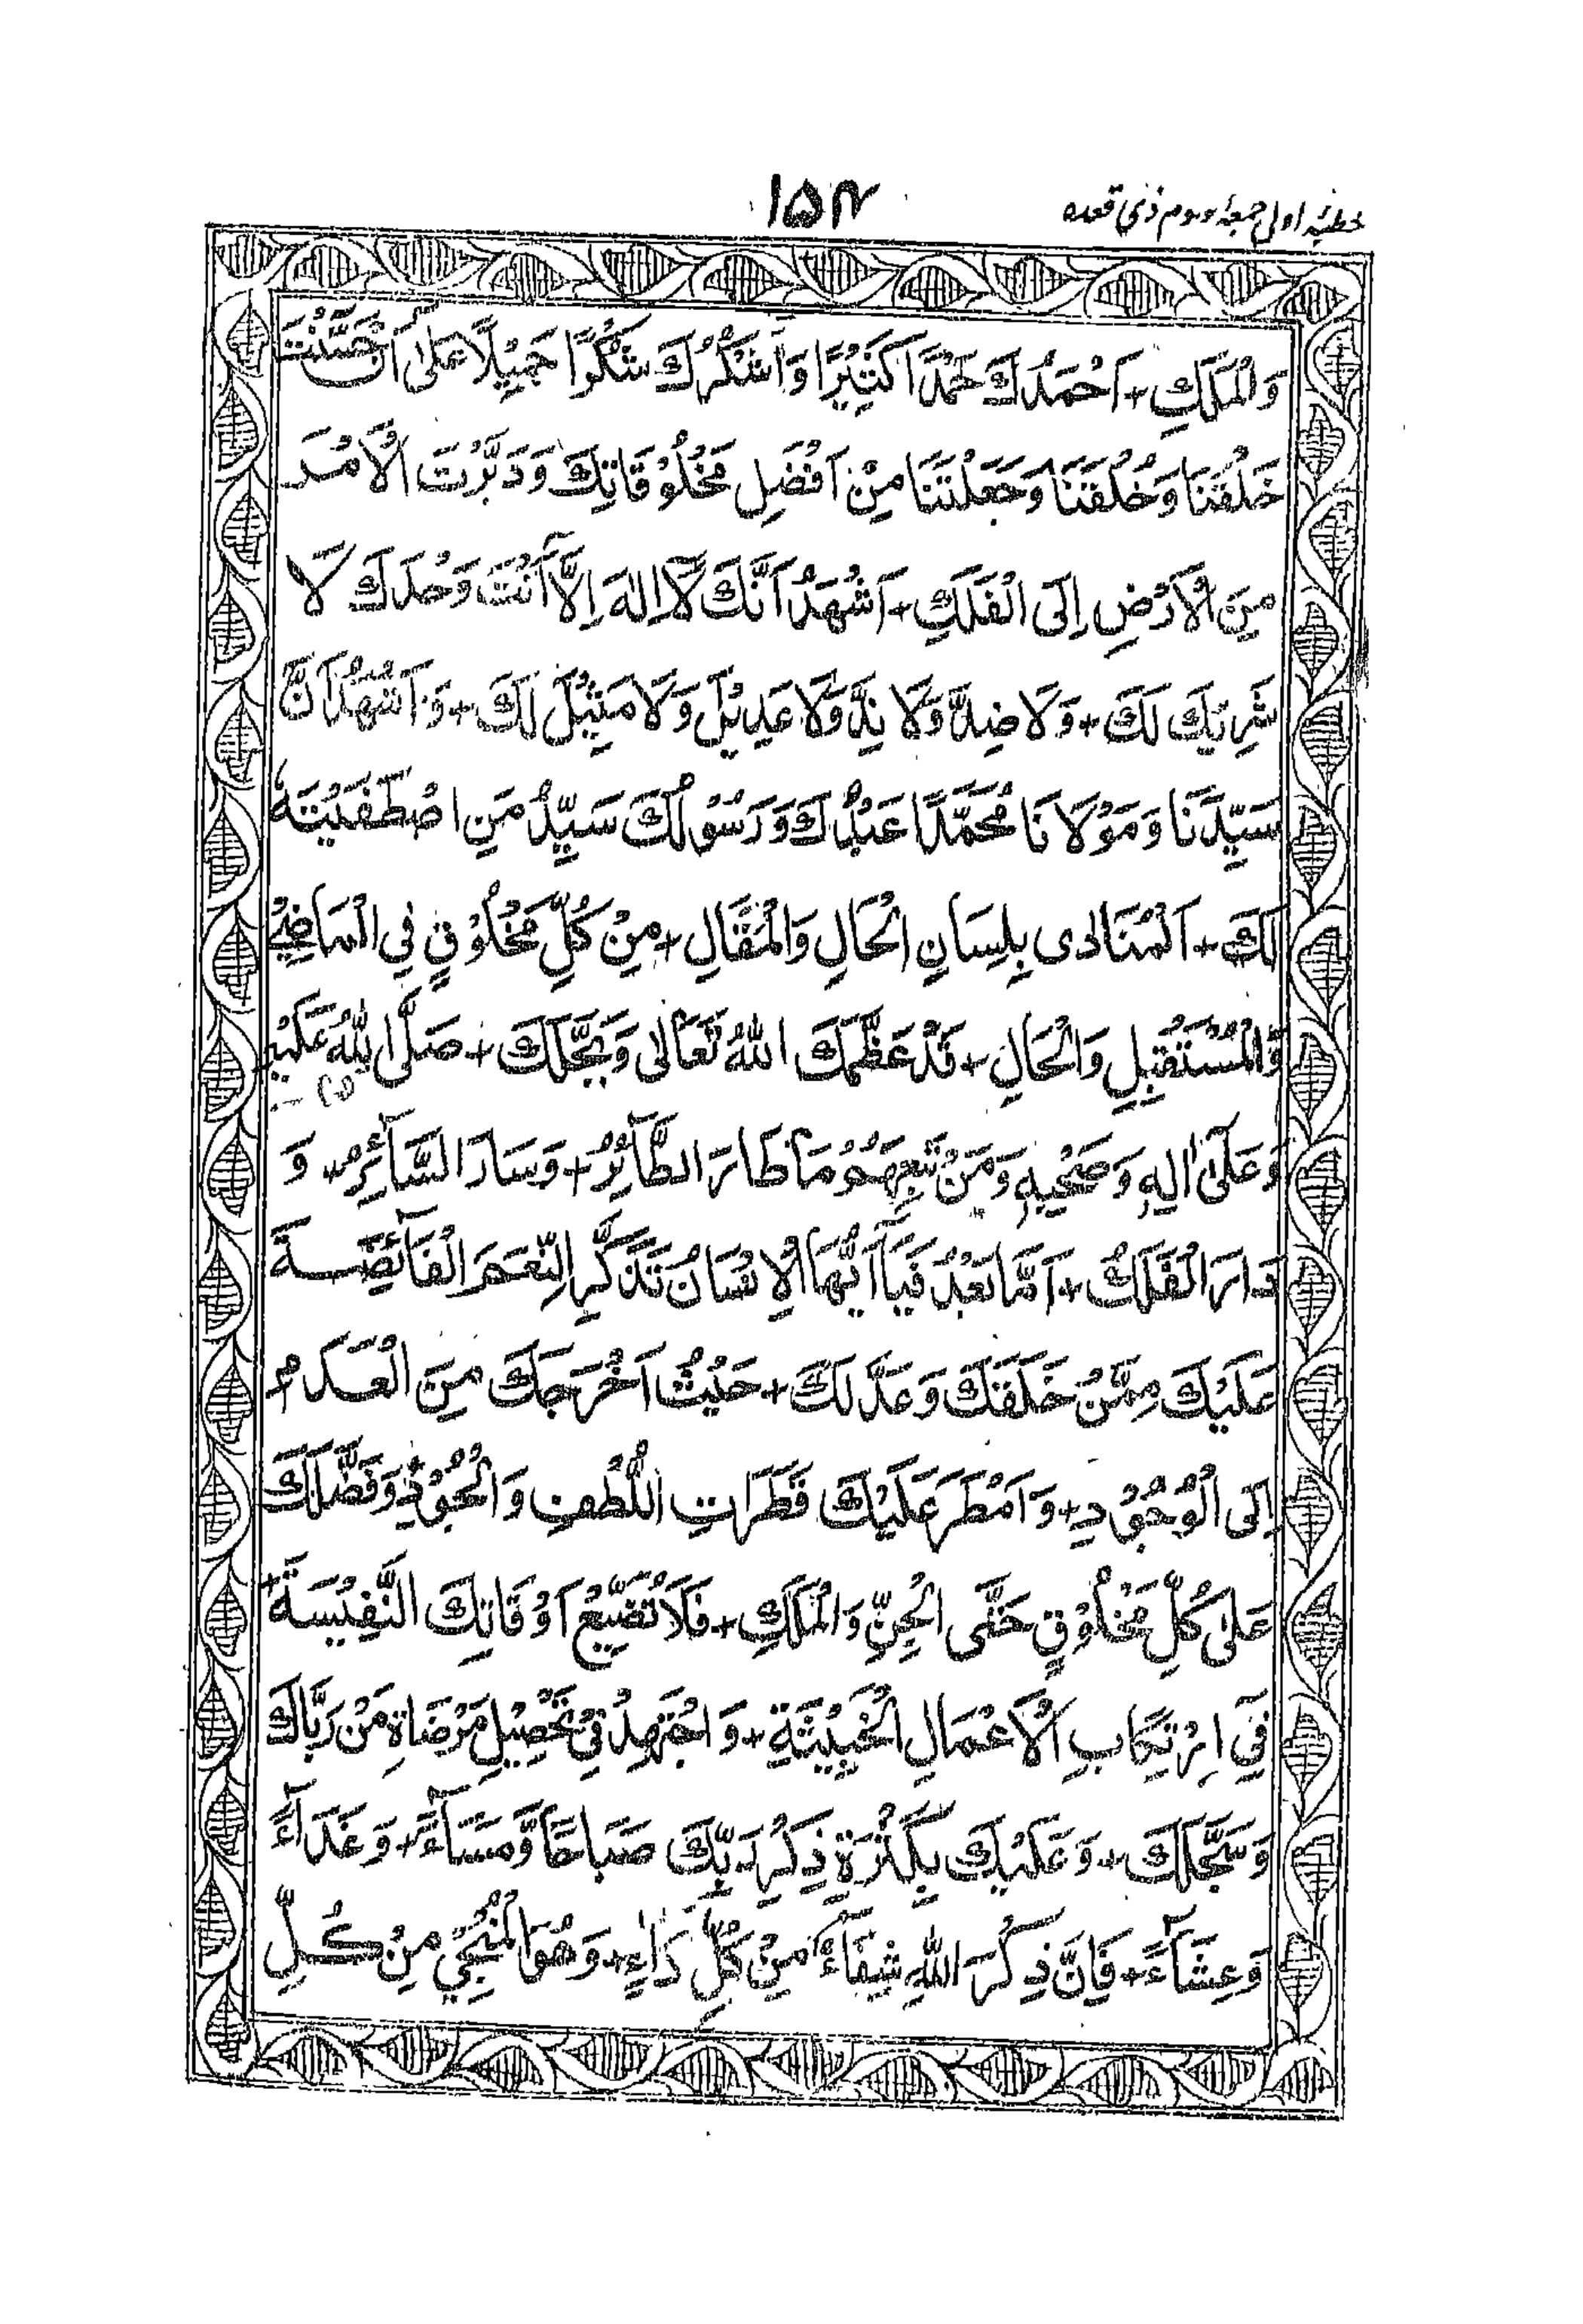 خطبۂ اولی جمعۂ سوم ذی قعدہ
۱۵۴
وَالْمَلَكِ + اَحْمَدُكَ حَمْدًا كَثِيْرًا وَاَشْكُرُكَ شُكْرًا جَمِيْلًا عَلٰى اَنْ حَسَّنْتَ
خَلْقَنَا وَخُلُقَنَا وَجَعَلْتَنَا مِنْ اَفْضَلِ مَخْلُوْقَاتِكَ وَدَبَّرْتَ الْاَمْرَ
مِنَ الْاَرْضِ اِلَى الْفَلَكِ + اَشْهَدُ اَنَّكَ لَا اِلٰهَ اِلَّا اَنْتَ وَحْدَكَ لَا
شَرِيْكَ لَكَ + وَلَا ضِدَّ وَلَا نِدَّ وَلَا عَدِيْلَ وَلَا مَثِيْلَ لَكَ + وَ اَشْهَدُ اَنَّ
سَيِّدَنَا وَمَوْلَانَا مُحَمَّدًا عَبْدُكَ وَرَسُوْلُكَ سَيِّدُ مَنِ اصْطَفَيْتَهٗ
لَكَ + اَلْمُنَادٰى بِلِسَانِ الْحَالِ وَالْمَقَالِ + مِنْ كُلِّ مَخْلُوْقٍ فِي الْمَاضِيْ
وَالْمُسْتَقْبِلِ وَالْحَالِ + قَدْ عَظَّمَكَ اللّٰهُ تَعَالٰى وَبَجَّلَكَ + صَلَّى اللّٰهُ عَلَيْهِ
وَعَلٰى اٰلِهٖ وَصَحْبِهٖ وَمَنْ تَبِعَهُمْ مَا طَارَ الطَّآئِرُ + وَسَارَ السَّآئِرُ + وَ
دَارَ الْفَلَكُ + اَمَّا بَعْدُ فَيَآ اَيُّهَا الْاِنْسَانُ تَذَكَّرِ النِّعَمَ الْفَآئِضَةَ
عَلَيْكَ مِمَّنْ خَلَقَكَ وَعَدَّلَكَ + حَيْثُ اَخْرَجَكَ مِنَ الْعَدَمِ
اِلَى الْوُجُوْدِ + وَ اَمْطَرَ عَلَيْكَ قَطَرَاتِ اللُّطْفِ وَالْجُوْدِ وَفَضَّلَكَ
عَلٰى كُلِّ مَخْلُوْقٍ حَتَّى الْجِنِّ وَالْمَلَكِ + فَلَا تُضَيِّعْ اَوْقَاتِكَ النَّفِيْسَةَ +
فِيْ اِرْتِكَابِ الْاَعْمَالِ الْخَبِيْثَةِ + وَ اجْتَهِدْ فِيْ تَحْصِيْلِ مَرْضَاةِ مَنْ رَبَّاكَ
وَسَجَّلَكَ + وَ عَلَيْكَ بِكَثْرَةِ ذِكْرِ رَبِّكَ صَبَاحًا وَّمَسَآءً + وَ غَدَآءً
وَعِشَآءً + فَاِنَّ ذِكْرَ اللّٰهِ شِفَآءٌ مِنْ كُلِّ دَاءٍ + وَهُوَ الْمُنْجِيْ مِنْ كُلِّ